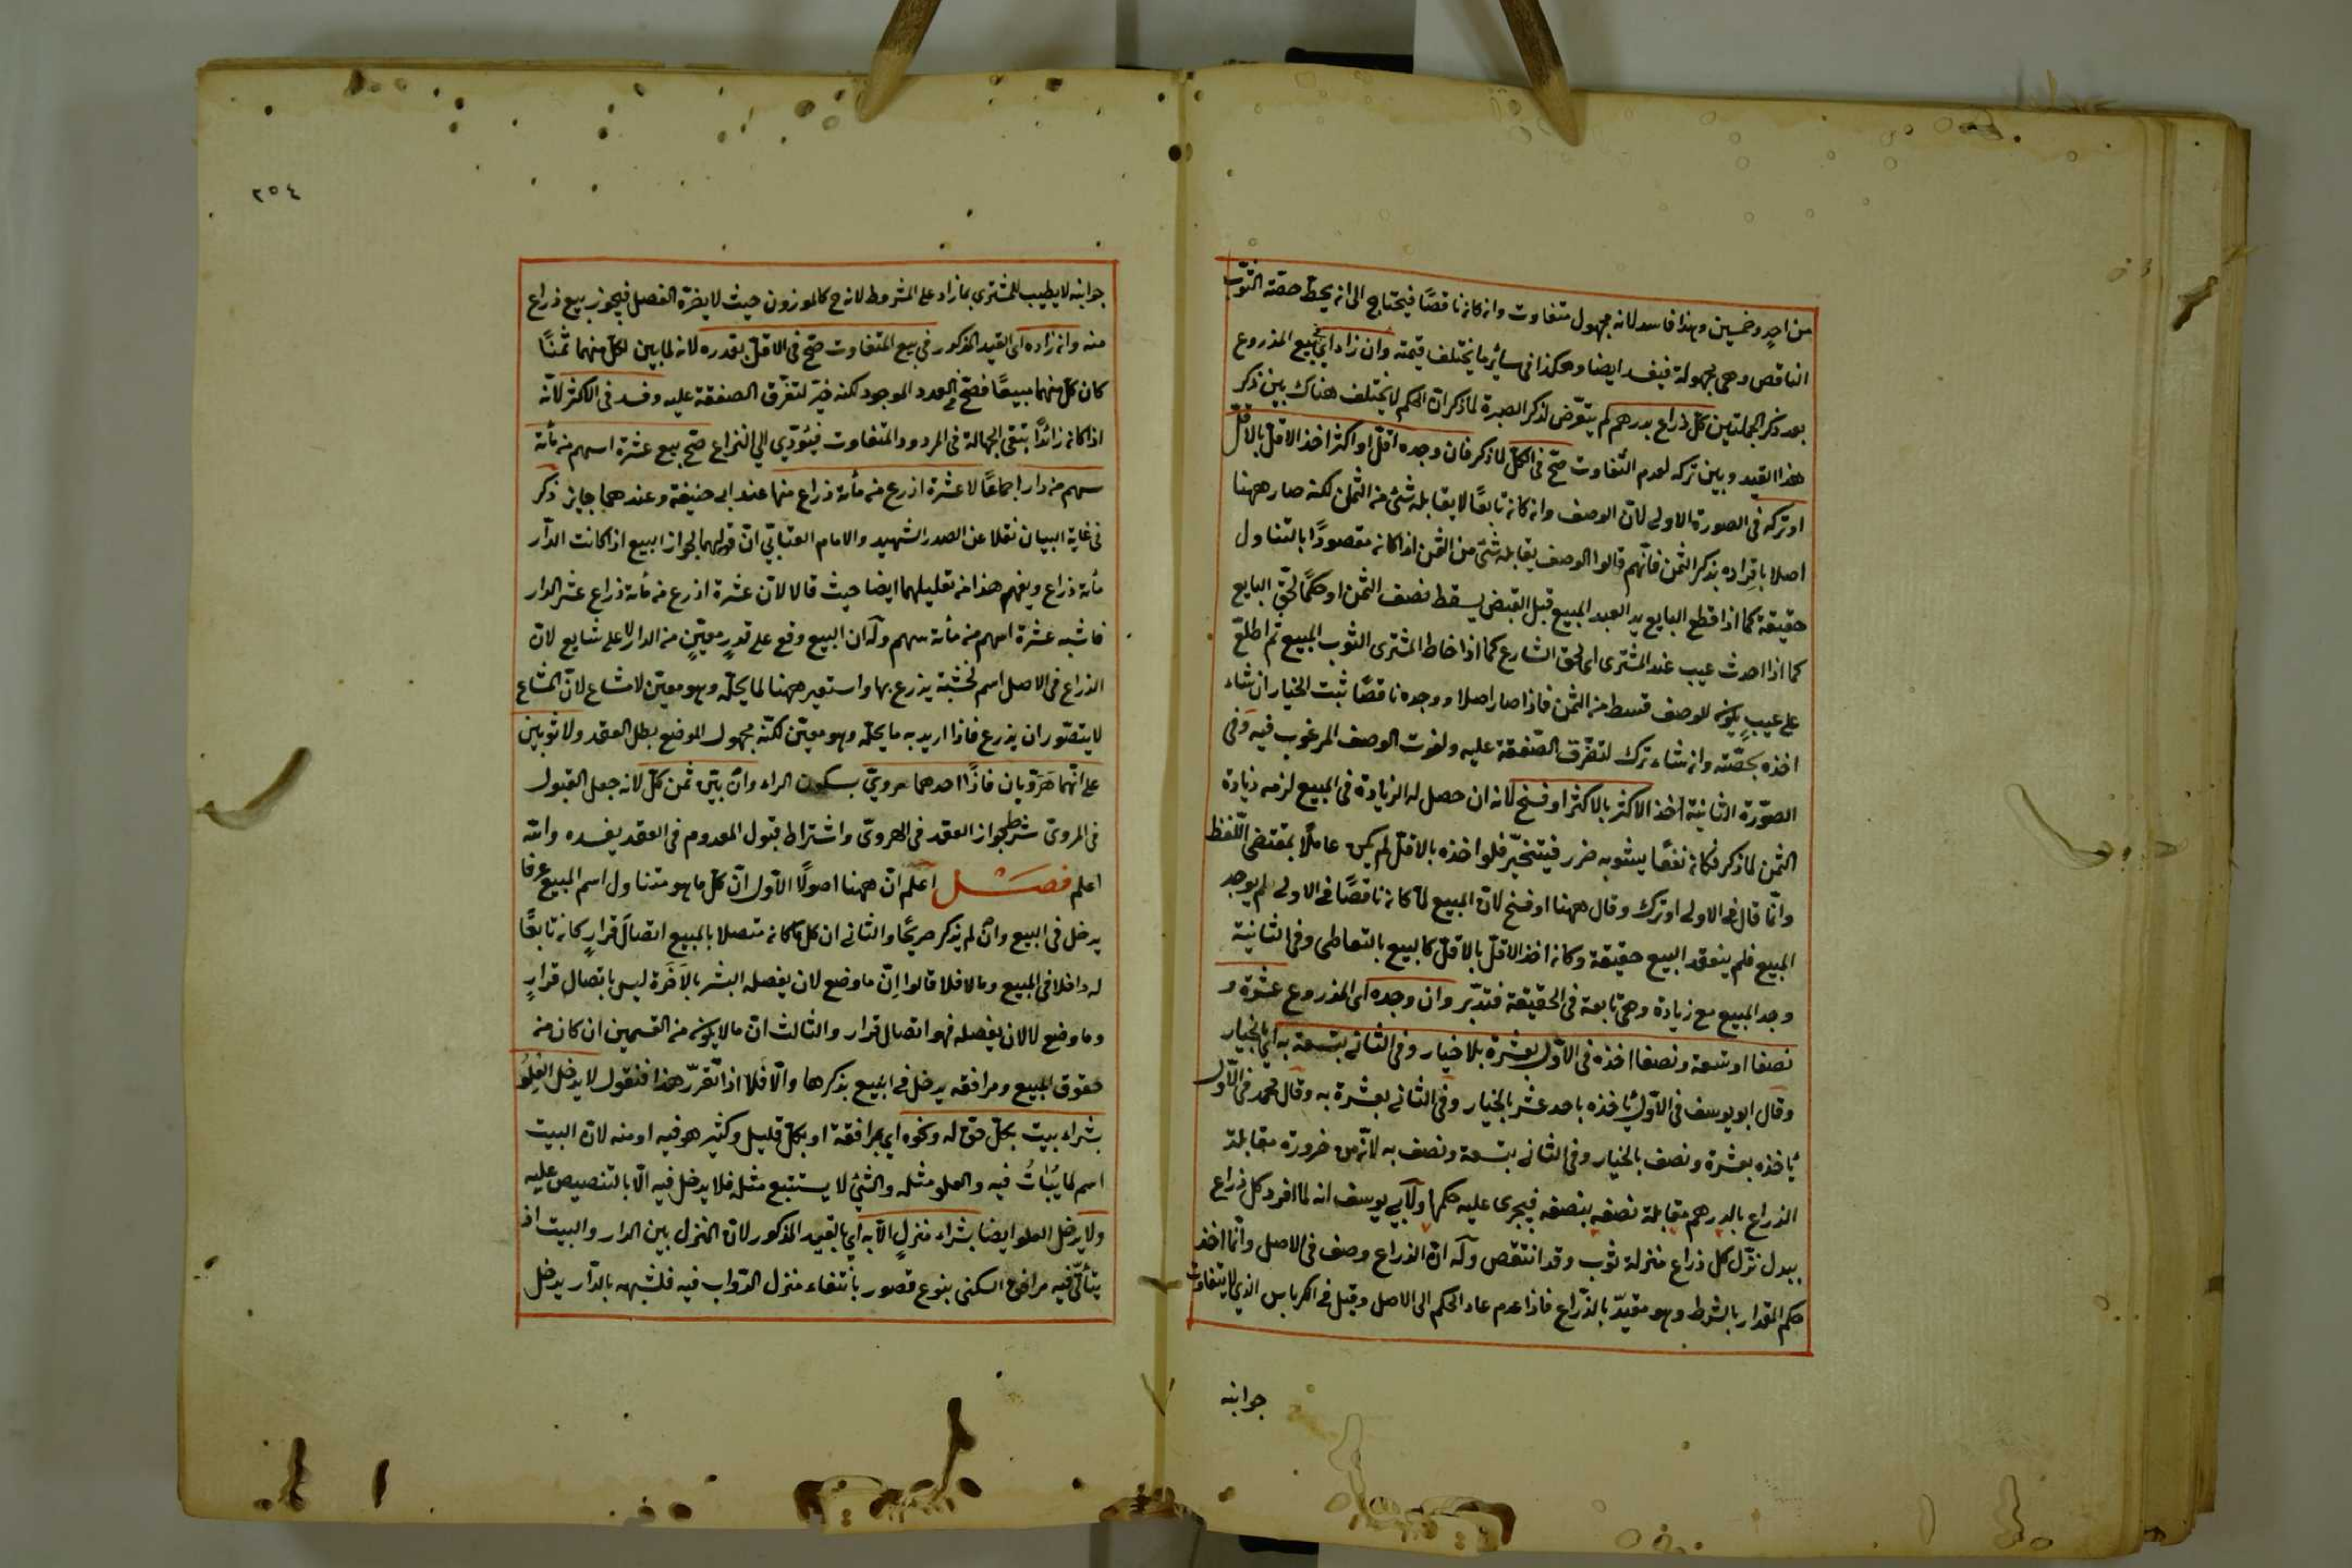 من احدٍ وخمسين وهذا فاسد لانه مجهول متفاوت وان كان ناقصًا فيحتاج الى ان يحطّ حصّة الثوب
الناقص وهى مجهولة فيفسد ايضا وهكذا فى سائر ما يختلف قيمته وان زاد اى فى بيع المذروع
بعد ذكر الجملتين كلّ ذراع بدرهم لم يتعّرض لذكر الصبرة لما ذكر انّ الحكم لا يختلف هناك بين ذكر
هذا القيد وبين تركه لعدم التّفاوت صّح فى الكلّ لما ذكر فان وجده اقلّ او اكثر اخذ الاقلّ بالاقلّ
او تركه فى الصورة الاولى لانّ الوصف وان كان تابعًا لا يقابله شئ من الثمن لكنه صار ههنا
اصلا بافراده بذكر الثمن فانّهم قالوا الوصف يقابله شئ من الثمن اذا كان مقصودًا بالتناول
حقيقة كما اذا قطع البايع يد العبد المبيع قبل القبض يسقط نصف الثمن او حكمًا لحقّ البايع
كما اذا حدث عيب عند المشترى او لحق الشارع كما اذا خاط المشترى الثوب المبيع ثم اطلع
على عيبٍ يكون للوصف قسط من الثمن فاذا صار اصلا ووجده ناقصًا ثبت الخيار ان شاء
اخذه بحصّته وان شاء ترك لتفرّق الصّفقة عليه ولفوت الوصف المرغوب فيه وفى
الصّورة الثانية اخذ الاكثر بالاكثر او فسخ لانه ان حصل له الزيادة فى المبيع لزمه زيادة
الثمن لما ذكر فكان نفعًا يشوبه ضرر فيتخيّر فلو اخذه بالاقلّ لم يكن عاملًا بمقتضى اللّفظ
وانّما قال فى الاولى او ترك وقال ههنا او فسخ لانّ المبيع لمّا كان ناقصًا فى الاولى لم يوجد
المبيع فلم ينعقد البيع حقيقة وكان اخذ الاقلّ بالاقلّ كالبيع بالتعاطى وفى الثانية
وجد المبيع مع زيادة وهى تابعة فى الحقيقة فتدبّر وان وجده اى المذروع عشرة و
نصفا او تسعة ونصفا اخذه فى الاوّل بعشرة بلا خيار وفى الثانى بتسعة به اى بالخيار
وقال ابو يوسف فى الاوّل يأخذه باحد عشر بالخيار وفى الثانى بعشرة به وقال محمد فى الاوّل
يأخذه بعشرة ونصف بالخيار وفى الثانى بتسعة ونصف به لانّه من ضرورة مقابلة
الذراع بالدرهم مقابلة نصفه بنصفه فيجرى عليه حكمها ولابى يوسف انه لما افرد كل ذراع
ببدل نزّل كل ذراع منزلة ثوب وقد انتقص وله انّ الذراع وصف فى الاصل وانّما اخذ
حكم المقدار بالشرط وهو مقيّد بالذّراع فاذا عدم عاد الحكم الى الاصل وقيل فى الكرباس الذى لا يتفاوت
جوانبه
٢٥٤
جوانبه لا يطيب للمشترى ما زاد على المشروط لانه ح كالموزون حيث لا يضرّه الفصل فيجوز بيع ذراع
منه وان زاده اى القيد المذكور فى بيع المتفاوت صّح فى الاقلّ بقدره لانه لما بين لكلّ منهما ثمنًا
كان كلّ منهما مبيعًا فصّح فى العدد الموجود لكنه خيّر لتفرّق الصفقة عليه وفسد فى الاكثر لانّه
اذا كان زائدًا بتقى الجهالة فى المردود المتفاوت فيئودّى الى النزاع صّح بيع عشرة اسهم من مأة
سهم من دار اجماعًا لا عشرة اذرع من مأة ذراع منها عند ابى حنيفة وعندهما جايز ذكر
فى غاية البيان نقلا عن الصدر الشهيد والامام العتابّى انّ قولهما بجواز البيع اذا كانت الدّار
مأة ذراع ويفهم هذا من تعليلهما ايضا حيث قالا لانّ عشرة اذرع من مأة ذراع عشر الدار
فاشبه عشرة اسهم من مأة سهم وله ان البيع وقع على قدرٍ معيّنٍ من الدار لا على شايع لانّ
الذراع فى الاصل اسم لخشبة يذرع بها واستعير ههنا لما يحلّه وهو معيّن لا مشاع لانّ المشاع
لا يتصّور ان يذرع فاذا اريد به ما يحلّه وهو معيّن لكنّه مجهول الموضع بطل العقد ولا ثوبين
على انّهما هَرَوّيان فاذًا احدهما مروىّ بسكون الراء وان بيّن ثمن كلّ لانه جعل القبول
فى المروىّ شرط لجواز العقد فى الهروىّ واشتراط قبول المعدوم فى العقد يفسده والله
اعلم فصــل اعلم انّ ههنا اصولًا الاوّل انّ كلّ ما هو متناول اسم المبيع عرفا
يدخل فى البيع وان لم يذكر صريحًا والثانى ان كلّ ما كان متصلا بالمبيع اتصالَ قرارٍ كان تابعًا
له داخلا فى المبيع وما لا فلا قالوا انّ ما وضع لان يفصله البشر بالآخَرة ليس باتصال قرارٍ
وما وضع لا لان يفصله فهو اتصال قرار والثالث انّ ما لا يكون من القسمين ان كان من
حقوق المبيع ومرافقه يدخل فى البيع بذكرها والّا فلا اذا تقرّر هذا فنقول لا يدخل العِلوُ
بشراء بيت بكلّ حقّ له ونحوه اى بمرافقه او بكلّ قليل وكثير هو فيه او منه لانّ البيت
اسم لما يُبَاتُ فيه والعلو مثله والشئ لا يستتبع مثله فلا يدخل فيه الّا بالتنصيص عليه
ولا يدخل العلو ايضا بشراء منزلٍ الّا به اى بالقيد المذكور لانّ المنزل بين الدار والبيت اذ
يتأتّى فيه مرافق السكنى بنوع قصور بانتفاء منزل الدّواب فيه فلشبهه بالدّار يدخل